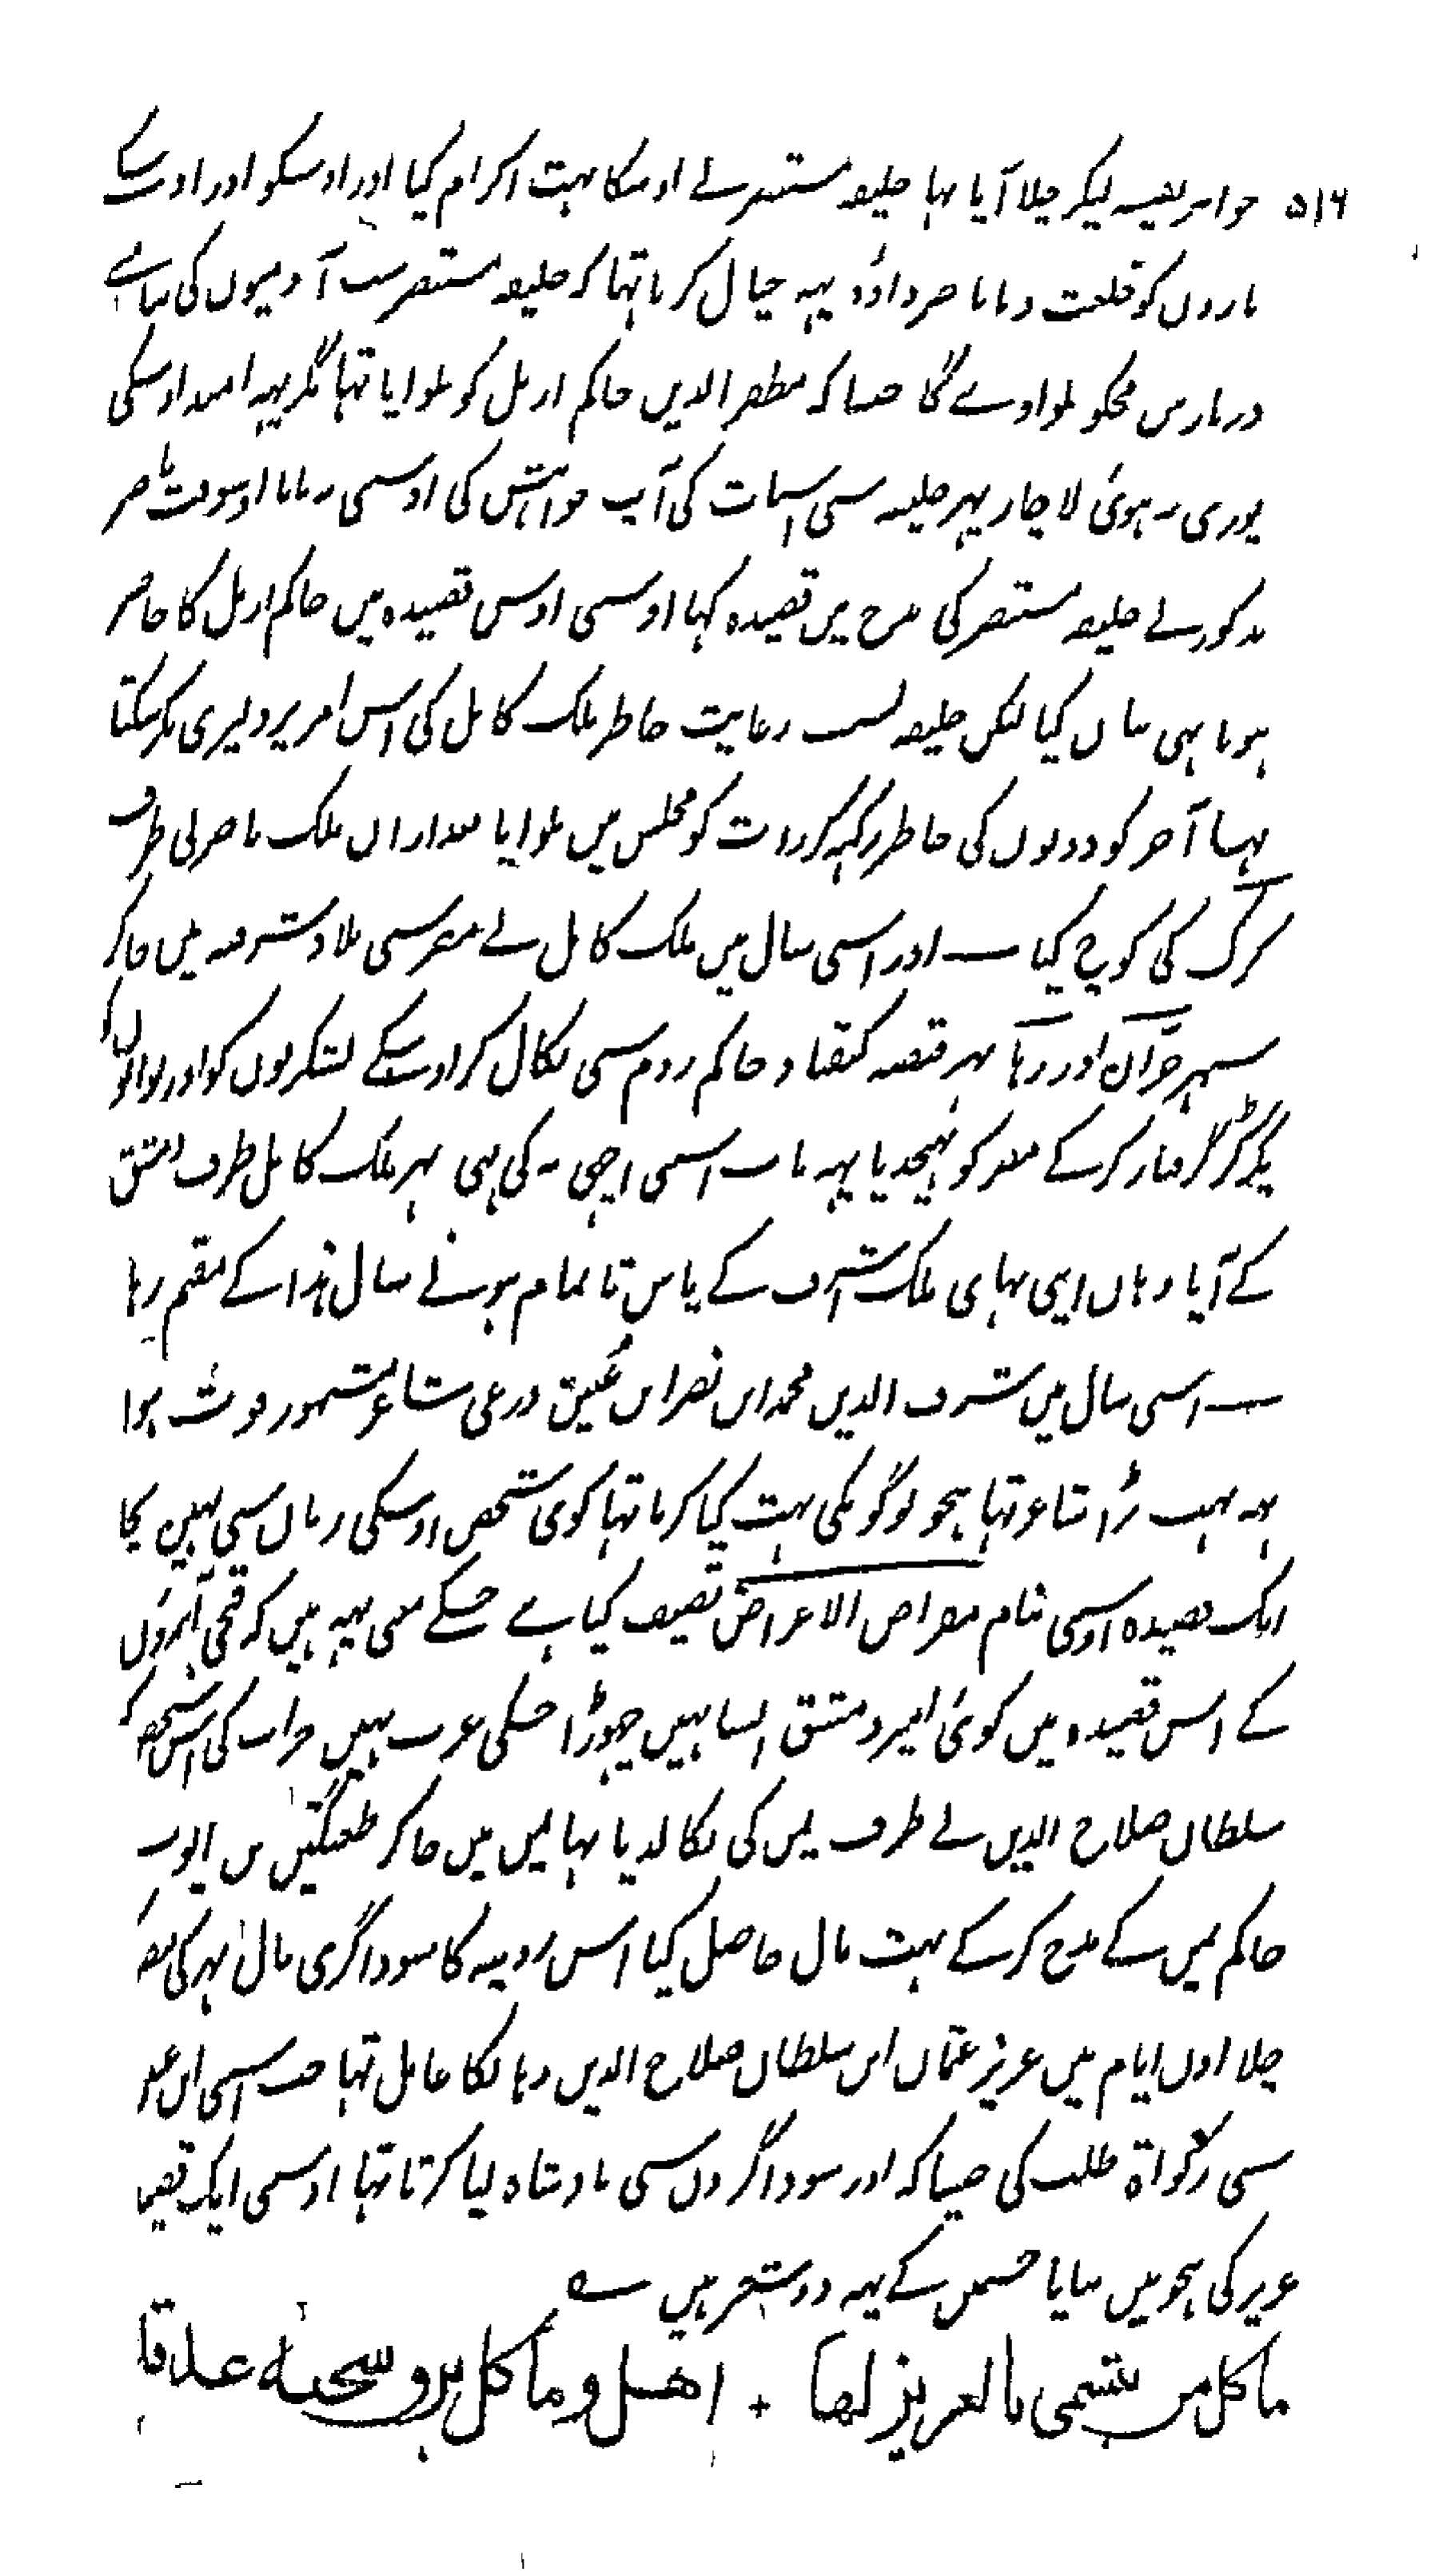 ۵۱۶ جواہر نفیسہ لیکر چلا آیا تہا خلیفہ مستنصر نے اوسکا بہت اکرام کیا اور اوسکو اور اوسکے
یاروں کو خلعت دیا ناصر داؤد یہہ خیال کرتا تہا کہ خلیفہ مستنصر سب آدمیوں کی سامنے
دربار میں مجکو بلوا دے گا جیسا کہ مظفر الدین حاکم اربل کو بلوایا تہا مگر یہہ امید اوسکی
پوری نہ ہوئی لاچار پہر خلیفہ سی اسبات کی آپ خواہش کی اوسنی نہ مانا اوسوقت ناصر
مذکور نے خلیفہ مستنصر کی مدح میں قصیدہ کہا اوسنی اوس قصیدہ میں حاکم اربل کا حاضر
ہونا بہی بیان کیا لیکن خلیفہ بسبب رعایت خاطر ملک کامل کی اس امر پر دلیری نکر سکتا
تہا آخر کو دونوں کی خاطر رکہہ کر رات کو مجلس میں بلوایا بعد ازاں ملک ناصر نی طرف
کرک کی کوچ کیا ــ اور اسی سال میں ملک کامل نے مصر سی بلاد شرقیہ میں جا کر
شہر حرّان اور رہا بہر قبضہ کیقباد حاکم روم سی نکال کر اوسکے لشکریوں کو اور نوابوں کو
پکڑ گرفتار کر کے مصر کو بہیجدیا یہہ بات اسنی اچہی نہ کی تہی پہر ملک کامل طرف دمشق
کے آیا وہاں اپنی بہائی ملک اشرف کے پاس تا تمام ہونے سال ہذا کے مقیم رہا
ــ اسی سال میں شرف الدین محمد ابن نصر ابن عنین زرعی شاعر مشہور فوت ہوا
یہہ بہت بڑا شاعر تہا ہجو لوگونکی بہت کیا کرتا تہا کوئی شخص اوسکی زبان سی نہیں بچا
ایک قصیدہ اوسنی بنام مقراض الاعراض تصنیف کیا ہے جسکے معنی یہہ ہیں کہ قینچی آبروں
کے اس قصیدہ میں کوئی امیر دمشق ایسا نہیں چہوڑا جسکی عزت نہیں خراب کی اس شخص کو
سلطان صلاح الدین نے طرف یمن کی نکالدیا تہا یمن میں جا کر طغتگین بن ایوب
حاکم یمن کے مدح کر کے بہت مال حاصل کیا اس روپیہ کا سوداگری مال بہر کی مصر کو
چلا اون ایام میں عزیز عثمان ابن سلطان صلاح الدین وہانکا عامل تہا جب اسنی ابن عنین
سی زکواۃ طلب کی جیسا کہ اور سوداگروں سی بادشاہ لیا کرتا تہا اوسنی ایک قصیدہ
عزیر کی ہجو میں بنایا جسمیں کے یہہ دو شعر ہیں ــہ
ما كل من يتسمى بالعزيز لها + اهل وما كل برق سحبه غدقا